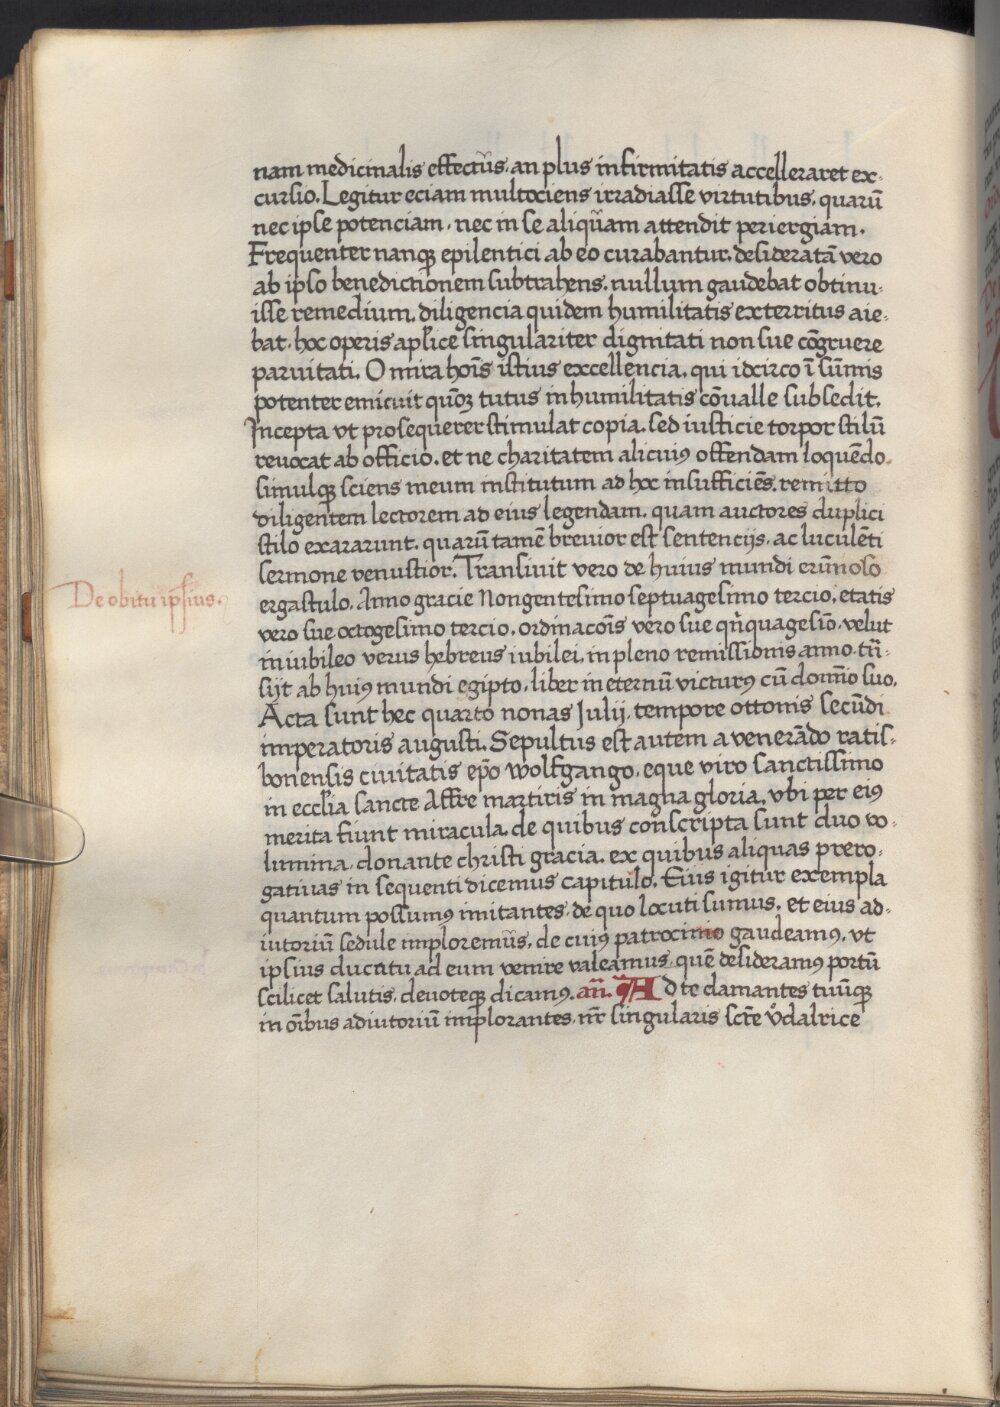 nam medicinalis effectūs, an plus infirmitatis accelleraret ex-
cursio. Legitur eciam multociens irradiasse virtutibus, quarū
nec ipse potenciam, nec in se aliquam attendit periergiam.
Frequenter nanqꝫ epilentici ab eo curabantur, desideratā vero
ab ipso benedictionem subtrahens, nullum gaudebat obtinu-
isse remedium, diligencia quidem humilitatis exterritus aie-
bat, hoc operis apl̄ice singulariter dignitati non sue cōgruere
paruitati. O mira hoīs istius excellencia, qui idcirco ī sūmis
potenter emicuit quōꝫ tutus in humilitatis cōualle subsedit.
Incepta vt prosequerer stimulat copia, sed iusticie torpor stilū
reuocat ab officio, et ne charitatem alicuiꝰ offendam loquēdo.
simulqꝫ sciens meum institutum ad hoc insufficiēs, remitto
diligentem lectorem ad eius legendam, quam auctores duplici
stilo exararunt, quarū tamē breuior est sentencijs, ac luculēti
sermone venustior. Transiuit vero de huius mundi erūnoso
De obitu ipsius.
ergastulo, Anno gracie Nongentesimo septuagesimo tercio, etatis
vero sue octogesimo tercio, ordinacōis vero sue qn̄quagesīo, velut
in iubileo verus hebreus iubilei, in pleno remissionis anno, tn̄-
sijt ab huiꝰ mundi egipto, liber in eternū victurꝰ cū domīo suo.
Acta sunt hec quarto nonas Julij, tempore ottonis secūdi
imperatoris augusti. Sepultus est autem a venerādo ratis-
bonensis ciuitatis ep̄o wolfgango, eque viro sanctissimo
in eccl̄ia sancte Affre martiris in magna gloria, vbi per eiꝰ
merita fiunt miracula, de quibus conscripta sunt duo vo-
lumina, donante christi gracia, ex quibus aliquas prero-
gatiuas in sequenti dicemus capitulo. Eius igitur exempla
quantum possumꝰ imitantes, de quo locuti sumus, et eius ad-
iutoriū sedule imploremus, de cuiꝰ patrocinio gaudeamꝰ, vt
ipsius ducatu ad eum venire valeamus, quē desideramꝰ portū
scilicet salutis, deuoteqꝫ dicamꝰ. an̄. Ad te clamantes tuūqꝫ
in oībus adiutoriū implorantes, nr̄ singularis sct̄e vͦdalrice